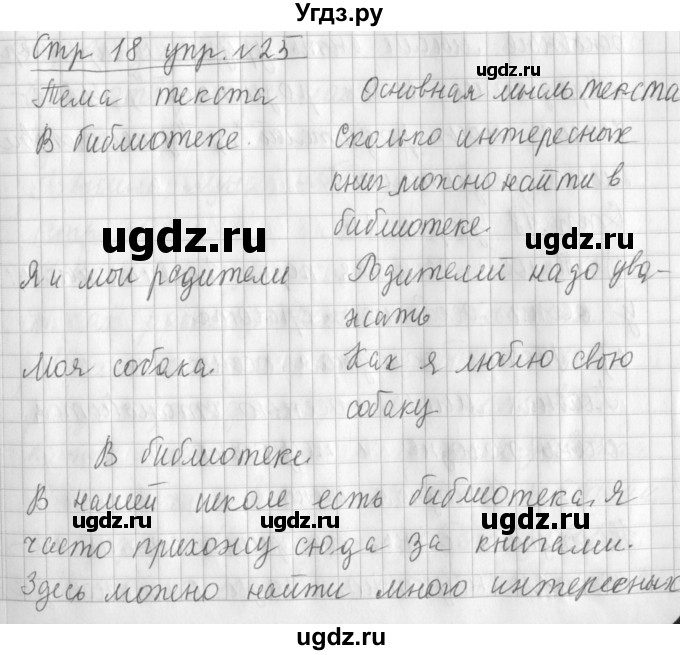 Угдз.ру
Стр 18 упр. №25
Тема текста Основная мысль текста
В библиотеке. Сколько интересных
книг можно найти в
библиотеке.
Я и мои родители Родителей надо ува-
жать
Моя собака. Как я люблю свою
собаку
В библиотеке.
В нашей школе есть библиотека, я
часто прихожу сюда за книгами.
Здесь можно найти много интересных
ugdz.ru
ugdz.ru
ugdz.ru
ugdz.ru
ugdz.ru
ugdz.ru
ugdz.ru
ugdz.ru